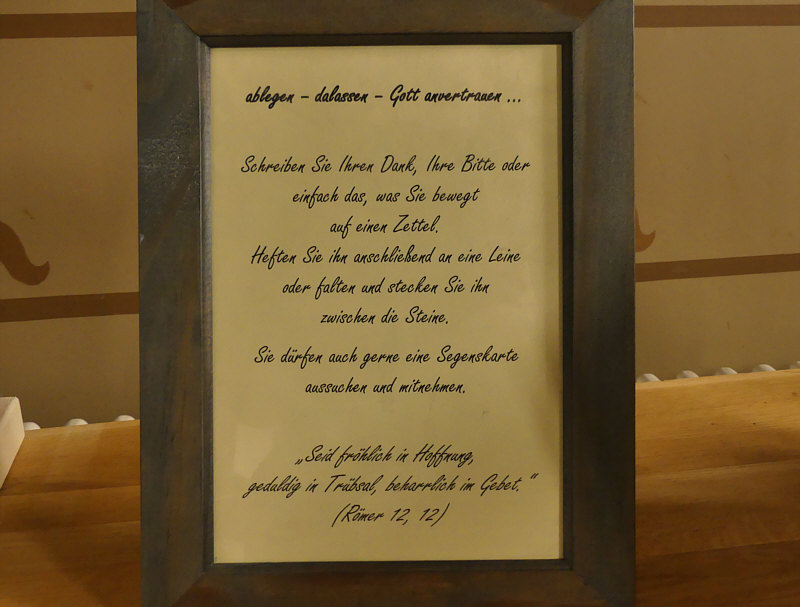 ablegen – dalassen – Gott anvertrauen ...
Schreiben Sie Ihren Dank, Ihre Bitte oder
einfach das, was Sie bewegt
auf einen Zettel.
Heften Sie ihn anschließend an eine Leine
oder falten und stecken Sie ihn
zwischen die Steine.
Sie dürfen auch gerne eine Segenskarte
aussuchen und mitnehmen.
„Seid fröhlich in Hoffnung,
geduldig in Trübsal, beharrlich im Gebet.“
(Römer 12, 12)